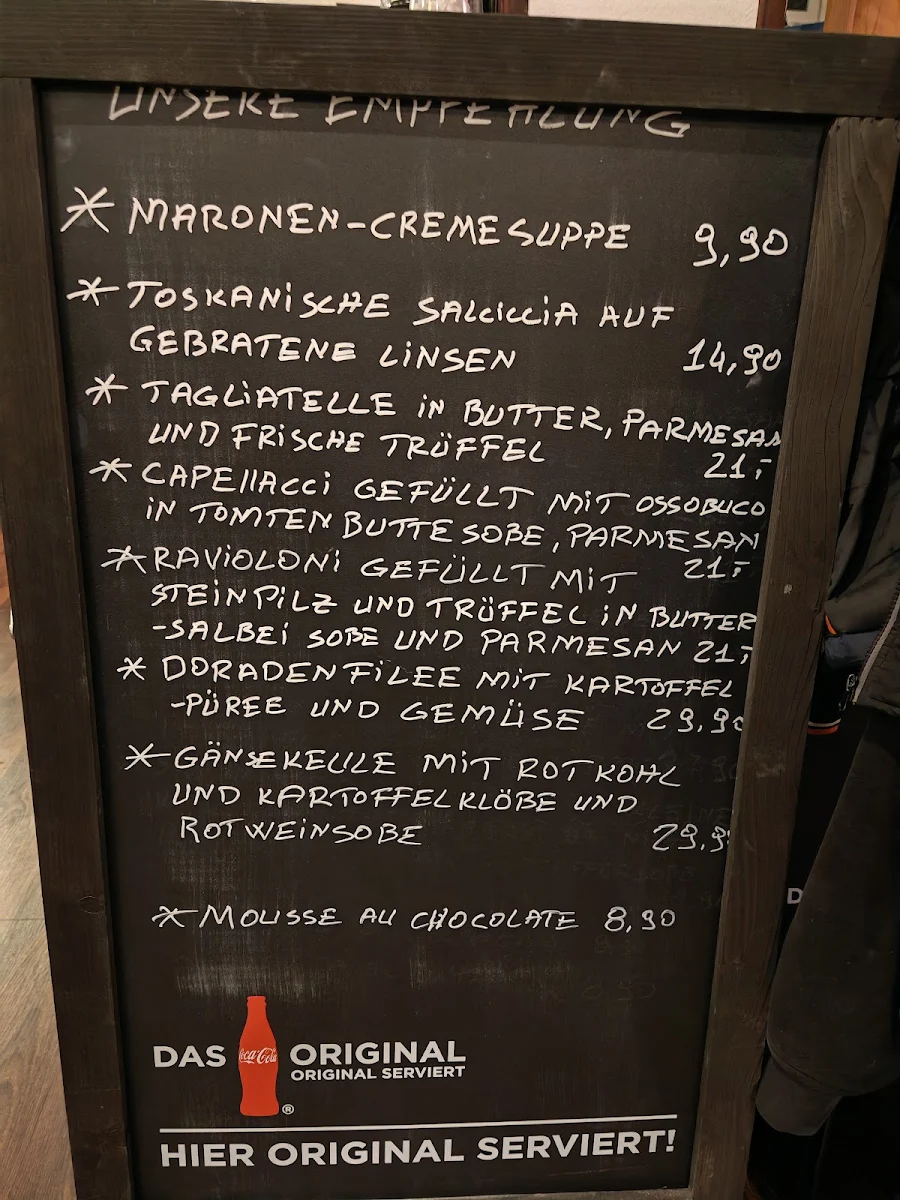 UNSERE EMPFEHLUNG
* MARONEN-CREMESUPPE 9,90
* TOSKANISCHE SALCICCIA AUF
GEBRATENE LINSEN 14,90
* TAGLIATELLE IN BUTTER, PARMESAN
UND FRISCHE TRÜFFEL 21,-
* CAPELLACCI GEFÜLLT MIT OSSOBUCO
IN TOMTEN BUTTE SOßE, PARMESAN
21,-
* RAVIOLONI GEFÜLLT MIT
STEINPILZ UND TRÜFFEL IN BUTTER
-SALBEI SOßE UND PARMESAN 21,-
* DORADENFILEE MIT KARTOFFEL
-PÜREE UND GEMÜSE 29,90
* GÄNSEKEULE MIT ROTKOHL
UND KARTOFFELKLÖßE UND
ROTWEINSOßE 29,9
* MOUSSE AU CHOCOLATE 8,90
DAS Coca-Cola ORIGINAL
ORIGINAL SERVIERT
HIER ORIGINAL SERVIERT!